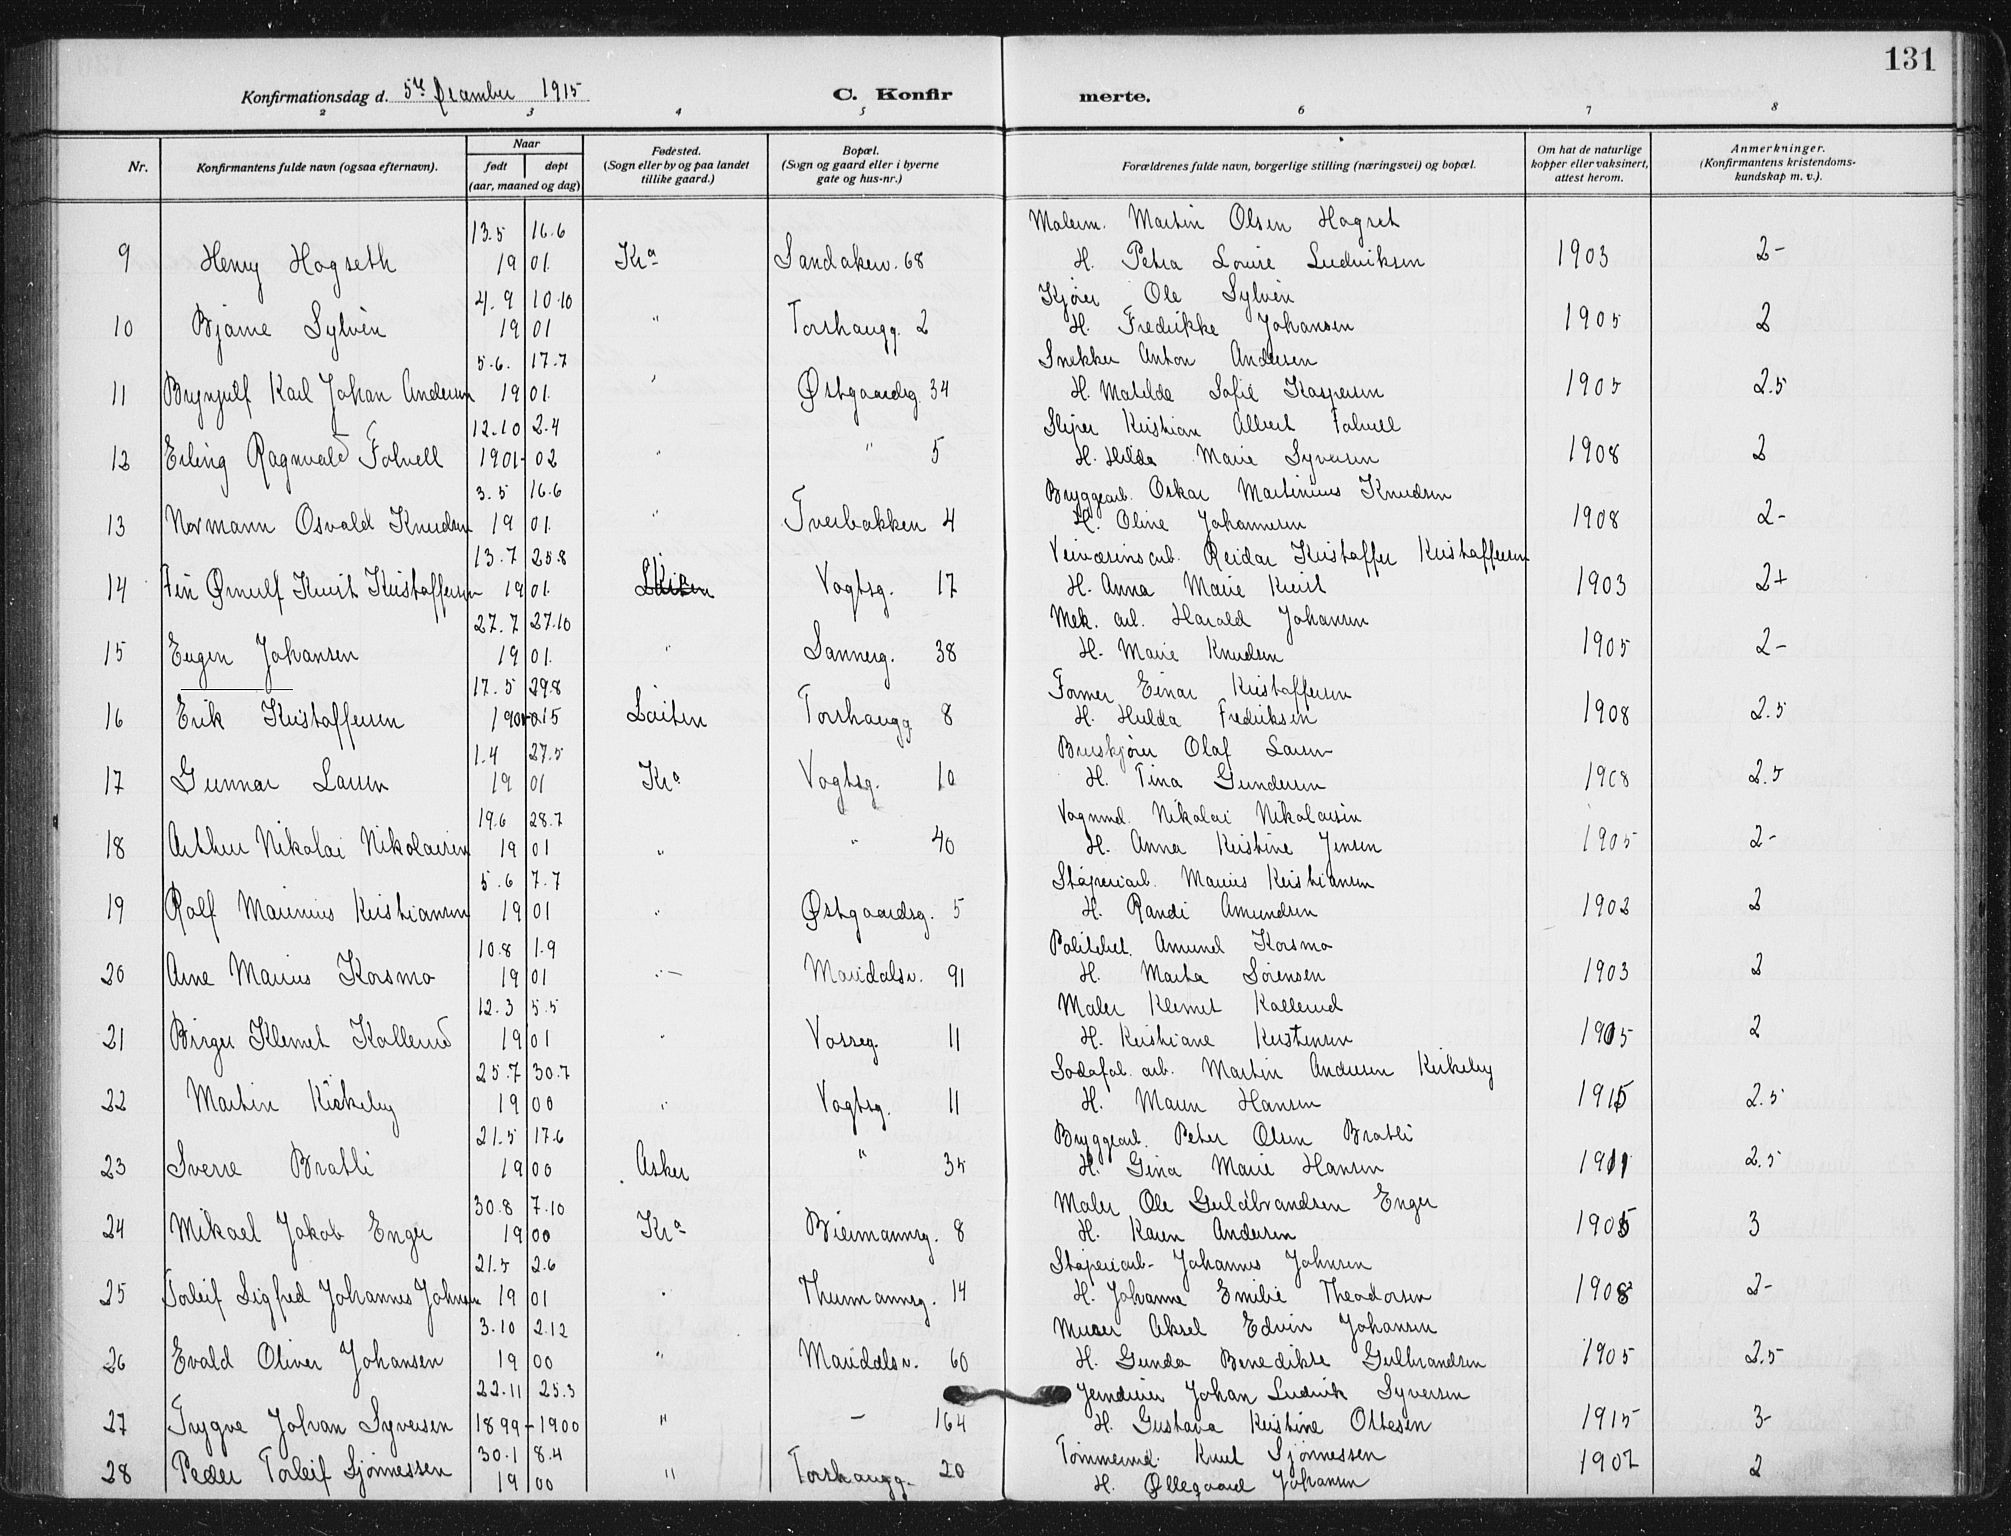 131
Konfirmationsdag d. 5te December 1915 C. Konfir merte.
2 3 4 5 6 7 8
Nr. Konfirmantens fulde navn (ogsaa efternavn). Naar født døpt (aar, maaned og dag) Fødested. (Sogn eller by og paa landet tillike gaard.) Bopæl. (Sogn og gaard eller i byerne gate og hus-nr.) Forældrenes fulde navn, borgerlige stilling (næringsvei) og bopæl. Om hat de naturlige kopper eller vaksinert, attest herom. Anmerkninger. (Konfirmantens kristendoms- kundskap m. v.).
13.5 16.6 Malerm. Martin Olsen Hagset
9 Henry Hogseth 19 01. Kra Sandakerv. 68 H. Petra Louise Ludviksen 1903 2-
4.9 10.10 Kjører Ole Sylvén
10 Bjarne Sylvén 19 01 " Torshaugg. 2 H. Fredrikke Johansen 1905 2
5.6. 17.7 Snekker Anton Andersen
11 Brynjulf Karl Johan Andersen 19 01. " Østgaardsg. 34 H. Matilde Sofie Kaspersen 1905 2.5
12.10 2.4 Sliper Kristian Albert Folvell
12 Erling Ragnvald Folvell 1901- 02 " " 5 H. Hilda Marie Syversen 1908 2
3.5 16.6 Bryggearb. Oskar Martinius Knudsen
13 Normann Osvald Knudsen 19 01. " Tverbakken 4 H. Oline Johannesen 1908 2-
13.7 25.8 Veivæsensarb. Reidar Kristoffer Kristoffersen
14 Ørnulf Kvist Kristoffersen 19 01. Vogtsg. 17 H. Anna Marie Kvist 1903 2+
27.7 27.10 Mek. arb. Harald Johansen
15 Eugen Johansen 19 01. " Sannerg. 38 H. Marie Knudsen 1905 2-
17.5 29.8 Former Einar Kristoffersen
16 Erik Kristoffersen 1901-015 Løiten Torshaugg 8 H. Hulda Fredriksen 1908 2.5
1.4 27.5 Bruskjører Olaf Larsen
17 Gunnar Larsen 19 01 Kra Vogtsg. 10 H. Tina Gundersen 1908 2.5
19.6 28.7 Vognmd. Nikolai Nikolaisen
18 Arthur Nikolai Nikolaisen 19 01 " " 40 H. Anna Kristine Jensen 1905 2-
5.6 7.7 Støperiarb. Marius Kristiansen
19 Rolf Marinius Kristiansen 19 01 " Østgaardsg. 5 H. Randi Amundsen 1902 2
10.8 1.9 Politibet. Amund Korsmo
20 Arne Marius Korsmo 19 01 "- Maridalsv. 91 H. Marta Sørensen 1903 2
12.3 5.5 Maler Klemet Kallerud
21 Birger Klemet Kallerud 19 01 " Vosseg. 11 H. Kristiane Kristensen 1915 2
25.7 30.7 Sodafab. arb. Martin Andersen Kirkeby
22 Martin Kirkeby 19 00 " Vogtsg. 11 H. Maren Hansen 1915 2.5
21.5 17.6 Bryggearb. Peter Olsen Bratli
23 Sverre Bratli 19 00 Asker " 35 H. Gina Marie Hansen 1911 2.5
30.8 7.10 Maler Ole Guldbrandsen Enger
24 Mikael Jakob Enger 19 00 Kra Biermannsg. 8 H. Karen Andersen 1905 3
21.5 2.6 Støperiarb- Johannes Johnsen
25 Torleif Sigfred Johannes Johnsen 19 01 " Thurmannsg. 14 H. Johanne Emilie Theodorsen 1908 2-
3.10 2.12 Murer Aksel Edvin Johansen
26 Evald Oliver Johansen 19 00 " Maridalsv. 60 H. Gunda Benedikte Gulbrandsen 1905 2.5
22.11 25.3 Jerndreier Johan Ludvik Syversen
27 Trygve Johan Syversen 1899-1900 " - 164 H. Gustava Kristine Ottesen 1915 3-
30.1 8.4 Tømmermd. Knut Sjønnessen
28 Peder Torleif Sjønnessen 19 00 " Torshaugg. 20 H. Øllegaard Johansen 1902 2